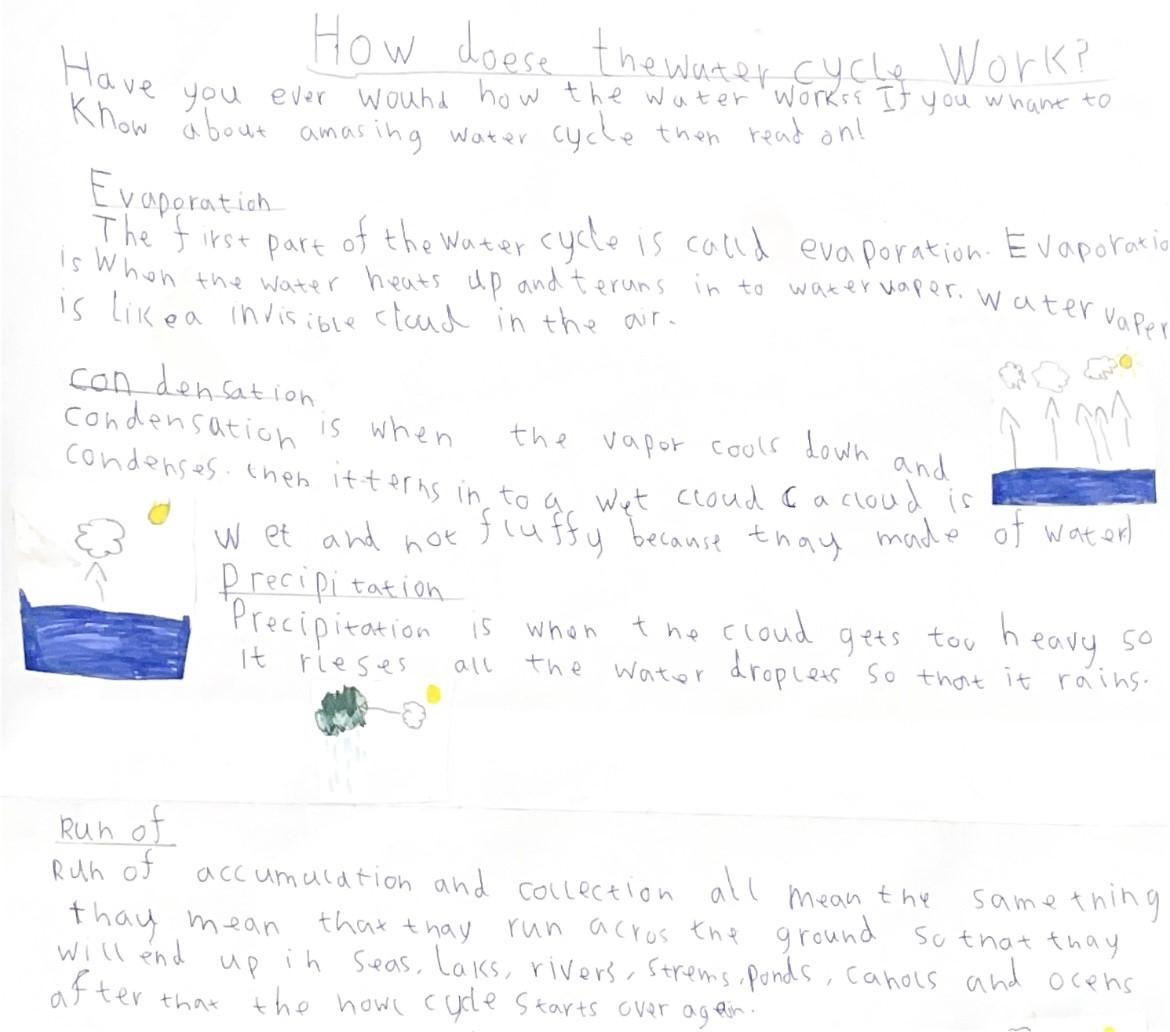 How doese the water cycle Work?
Have you ever wound how the water works? If you whant to
Know about amasing water cycle then read on!
Evaporation
The first part of the water cycle is calld evaporation. Evaporatio
is When the water heats up and teruns in to water vaper. Water vaper
is like a invisible cloud in the air.
condensation
condensation is when the vapor cools down and
condenses. then it terns in to a wet cloud (a cloud is
wet and not fluffy because thay made of water)
Precipitation
Precipitation is when the cloud gets too heavy so
it rleses all the water droplets so that it rains.
Run of
Run of accumulation and collection all mean the same thing
thay mean that thay run acros the ground so that thay
will end up in seas, laks, rivers, strems, ponds, canols and ocens
after that the howl cycle starts over again.